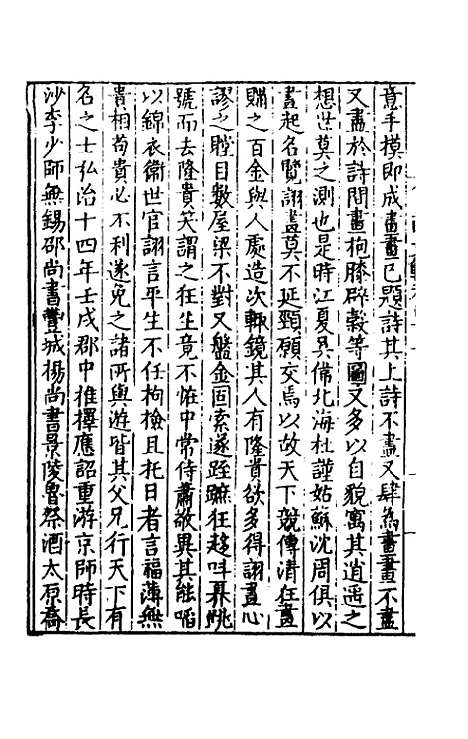 意手模即成畫畫已題詩其上詩不盡又肆為畫畫不盡
又盡於詩問畫枸膝辟穀等圖又多以自貌寓其逍遥之
想世莫之測也是時江夏吴偉北海杜謹姑蘇沈周俱以
畫起名覽詡畫莫不延頸願交焉以故天下競傳清狂畫
購之百金與人處造次輒鏡其人有隆貴欲多得詡畫心
謬之瞠目數屋梁不對又盤金固索遂跅䟾狂趍呌㚖咷
號而去隆貴笑謂之狂生竟不恠中常侍蕭敬異其能㗖
以錦衣衛世官詡言平生不任拘檢且托日者言福薄無
貴相苟貴必不利遂免之諸所與遊皆其父兄行天下有
名之士弘治十四年壬戌郡中推擇應詔重游京師時長
沙李少師無錫邵尚書豐城楊尚書景陵魯祭酒太原喬